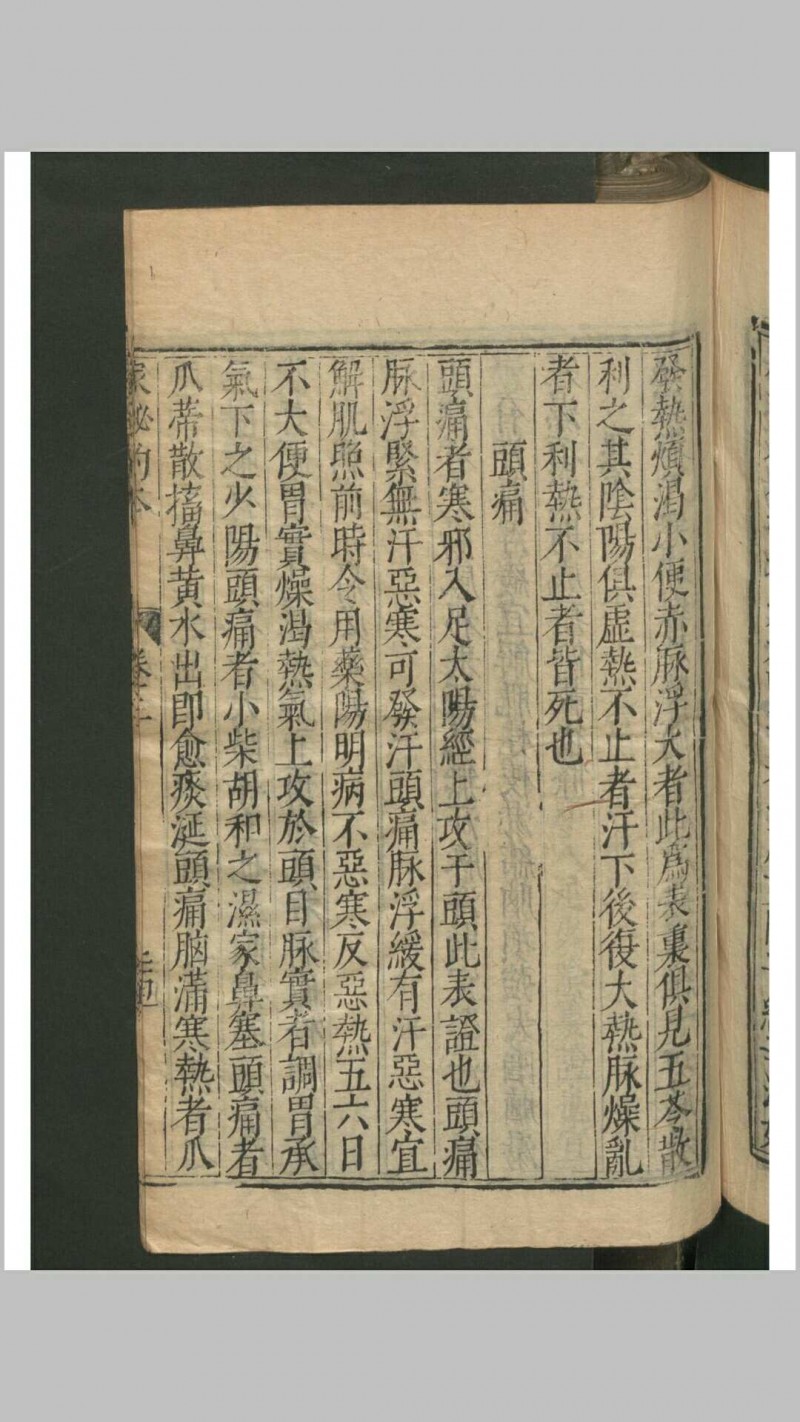 發熱煩渴小便赤脉浮大者此爲表裏俱見五苓散
利之其陰陽俱虛熱不止者汗下後復大熱脉燥亂
者下利熱不止者皆死也
頭痛
頭痛者寒邪入足太陽經上攻于頭此表證也頭痛
脉浮緊無汗惡寒可發汗頭痛脉浮緩有汗惡寒宜
解肌照前時令用藥陽明病不惡寒反惡熱五六日
不大便胃實燥渴熱氣上攻於頭目脉實者調胃承
氣下之少陽頭痛者小柴胡和之濕家鼻塞頭痛者
爪蒂散搐鼻黄水出即愈痰涎頭痛脑滿寒熱者爪
家秘的本 卷